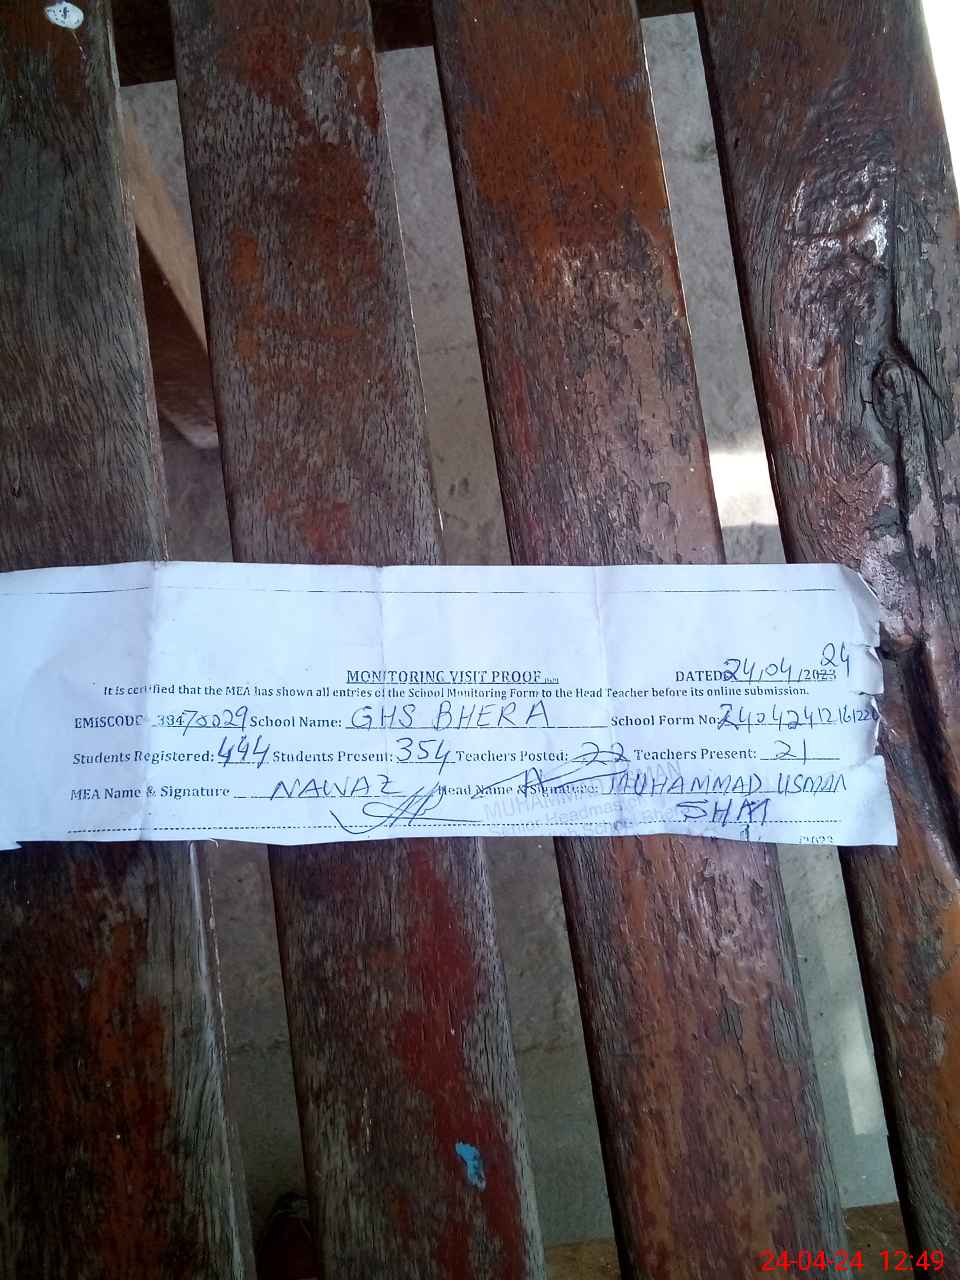 MONITORING VISIT PROOF
DATED 24/04/2023 24
It is certified that the MEA has shown all entries of the School Monitoring Form to the Head Teacher before its online submission.
EMISCODE 38470029 School Name: GHS BHERA School Form No:
Students Registered: 494 Students Present: 354 Teachers Posted: 22 Teachers Present: 21
MEA Name & Signature NAWAZ Head Name & Signature: MUHAMMAD USMAN
SHM
MUHAMMAD USMAN
Senior Headmaster
24-04-24 12:49